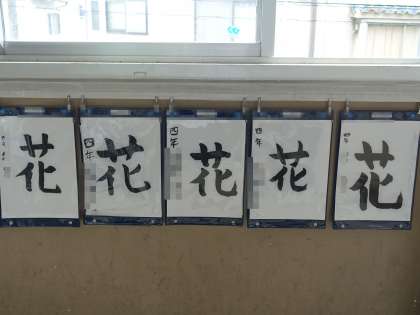 花
四年
花
四年
花
四年
花
花